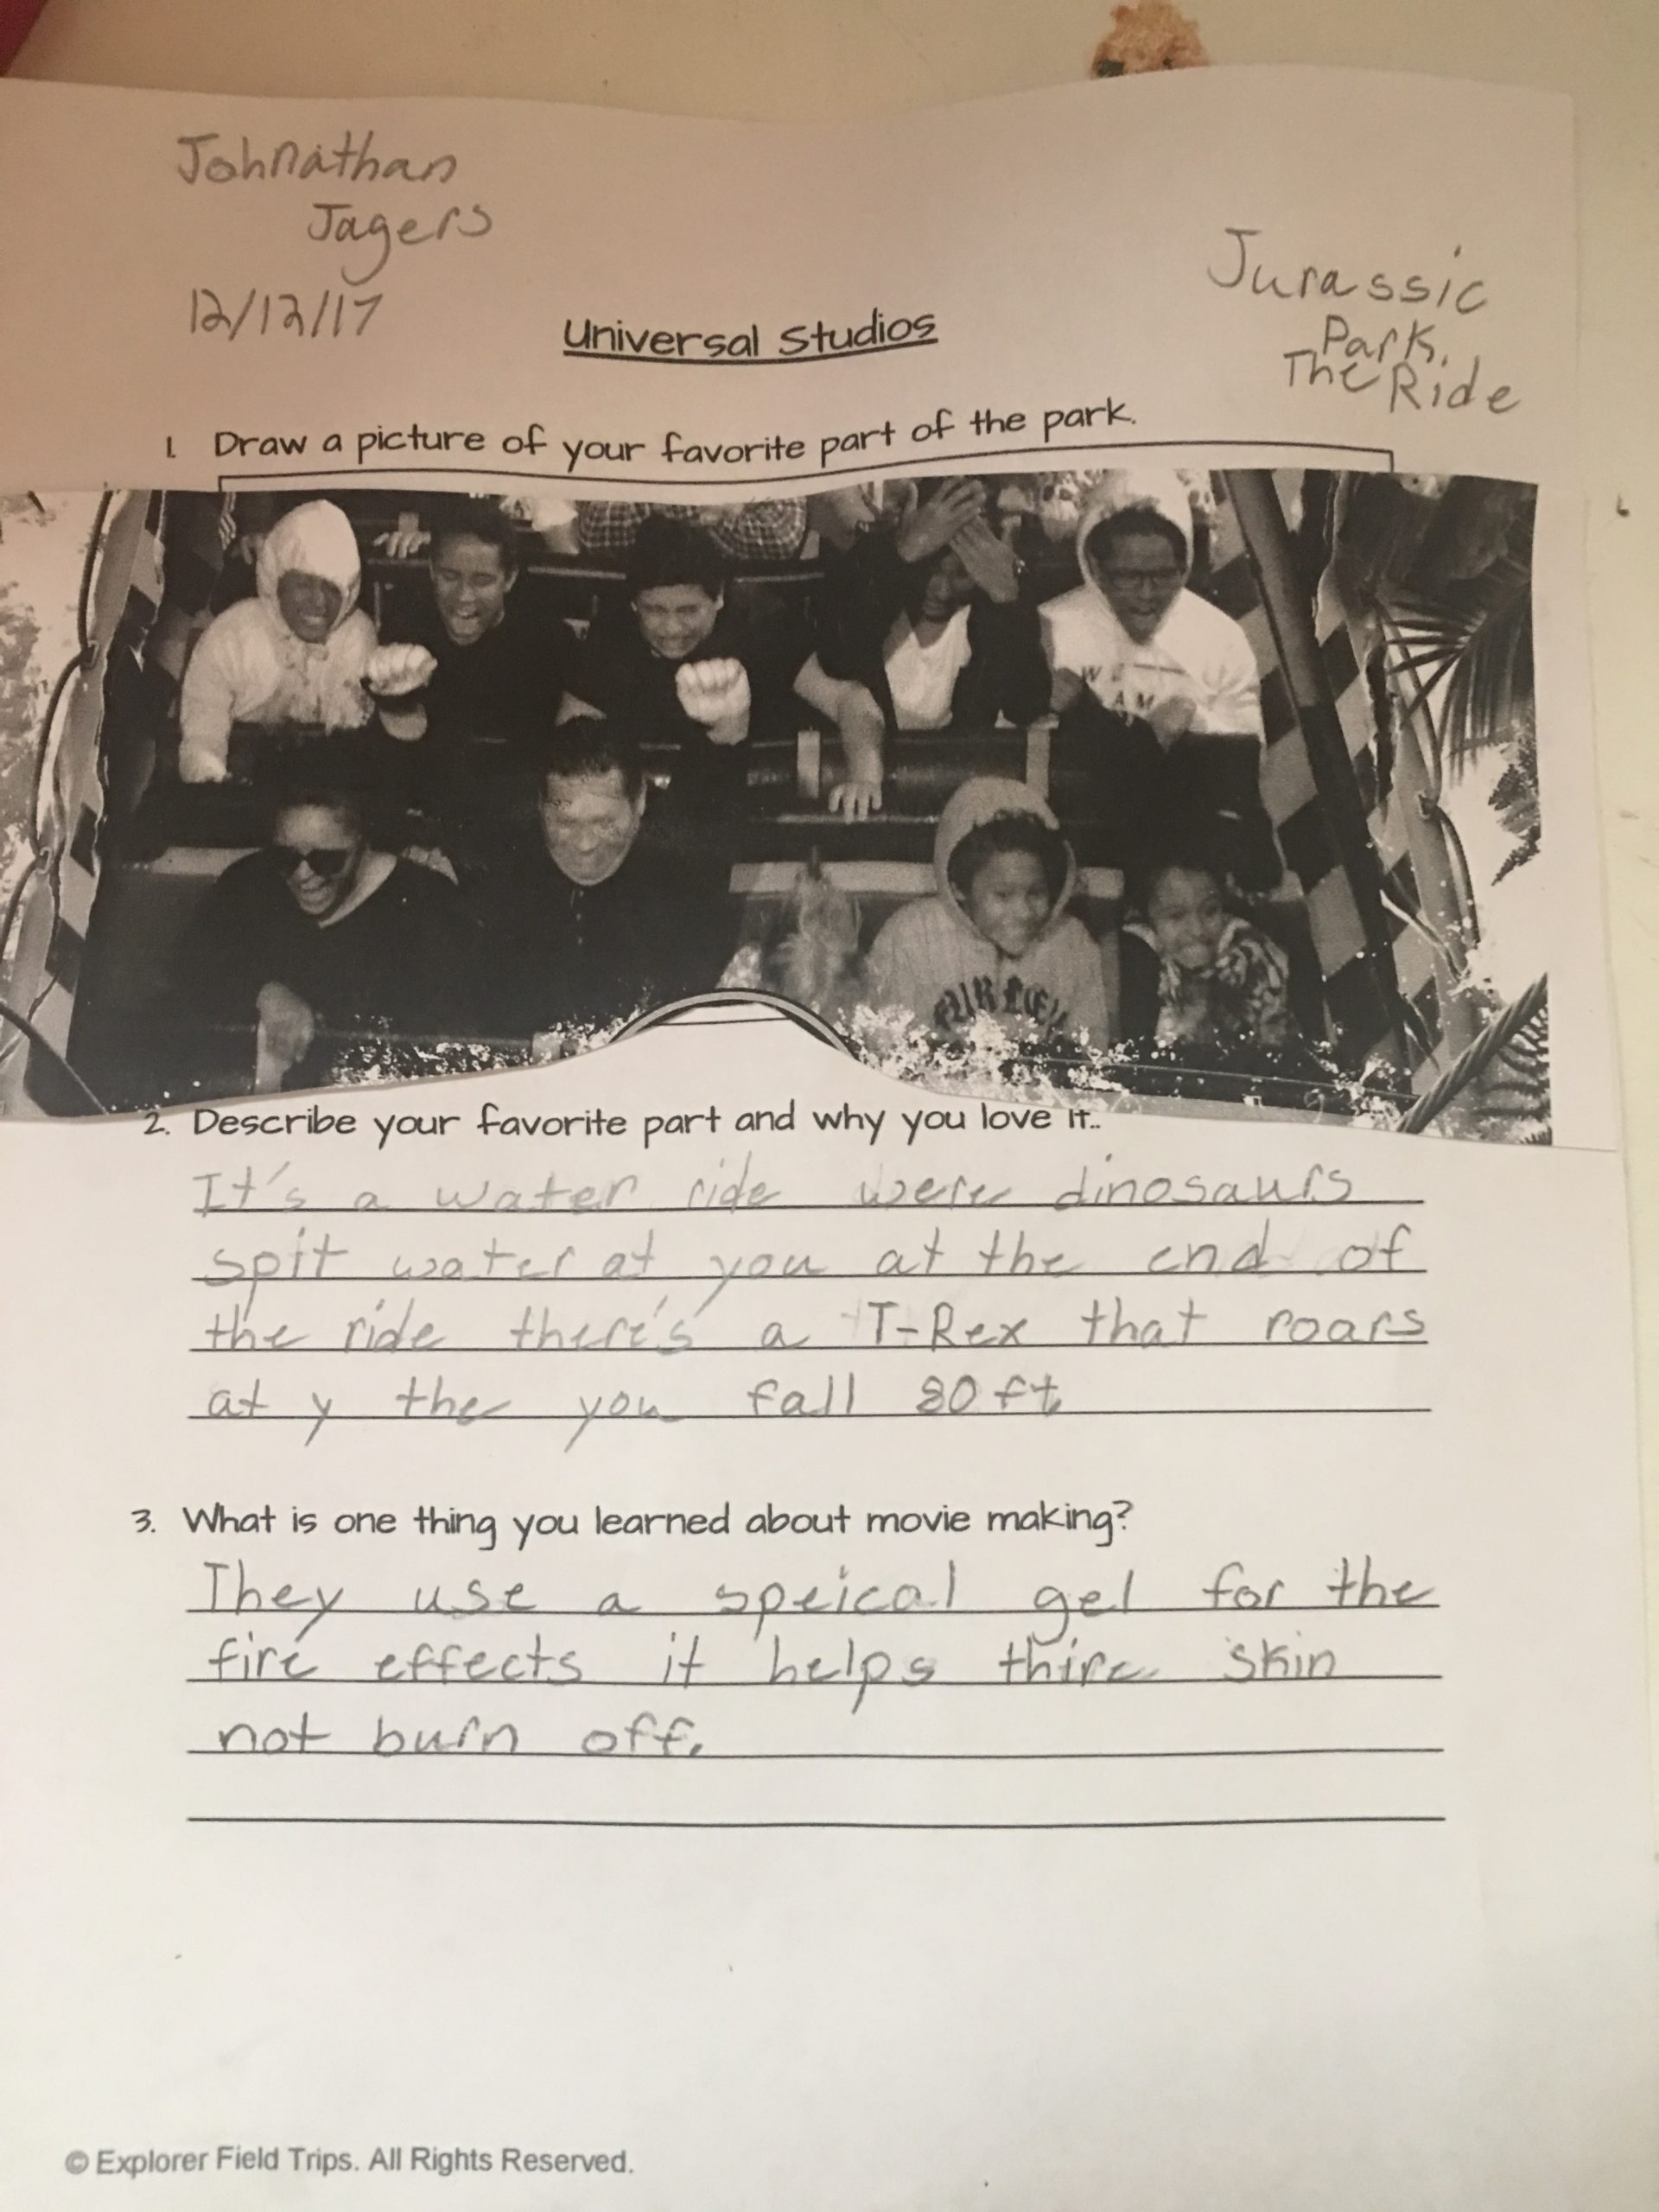 Johnathan
Jagers
12/12/17
Jurassic
Park.
The Ride
Universal Studios
1. Draw a picture of your favorite part of the park.
2. Describe your favorite part and why you love it..
It's a water ride were dinosaurs
spit water at you at the end of
the ride there's a T-Rex that roars
at y the you fall 80 ft
3. What is one thing you learned about movie making?
They use a speical gel for the
fire effects it helps thire skin
not burn off.
© Explorer Field Trips. All Rights Reserved.